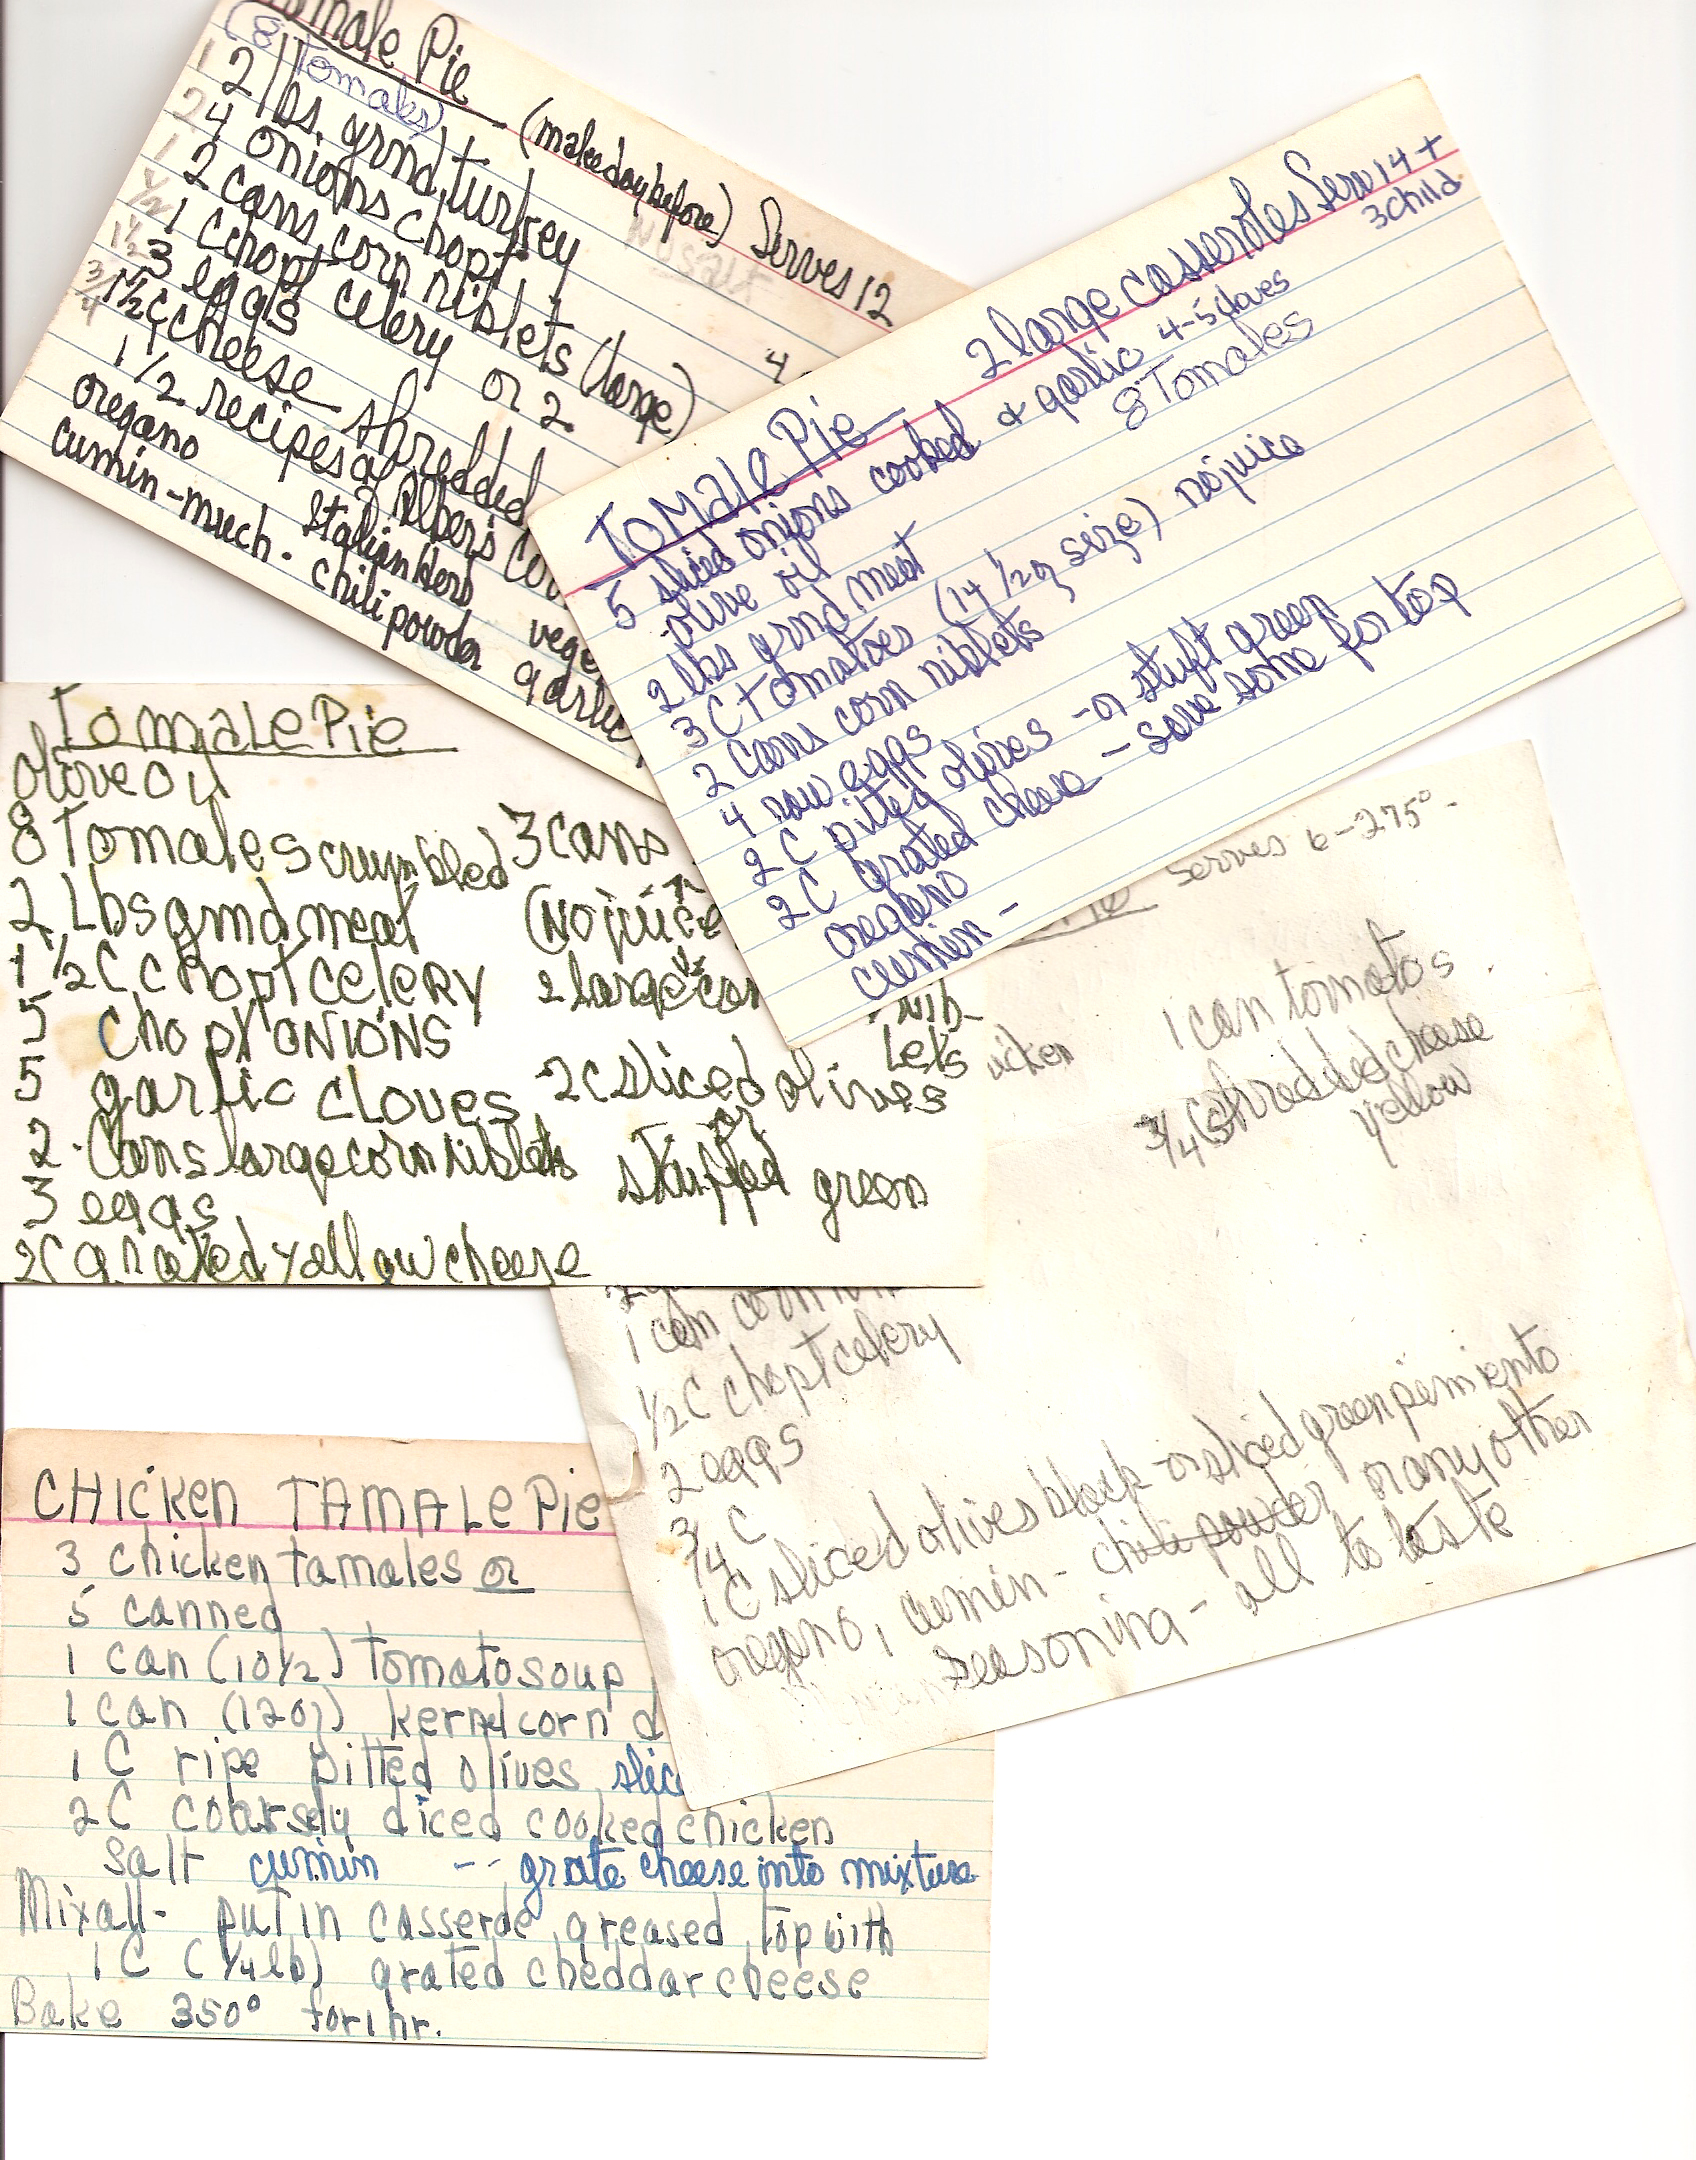 male Pie (make day before) Serves 12
(8 Tomales)
No salt
1 2 lbs. grnd, turkey
2 4 onions chopt
1 2 cans corn niblets (large)
1/2 1 C chopt celery or 2
1 1/2 3 eggs
3/4 1 1/2 C cheese shredded
1 1/2 recipes of Albers Cor
oregano Italian Herb vege
cumin - much - chili powder garlic
4
2 large casseroles Serv 14 +
3 child
Tomale Pie
5 sliced onions cooked & garlic 4-5 cloves
olive oil 8 Tomales
2 lbs grnd meat
3 C tomatoes (14 1/2 oz size) no juice
2 cans corn niblets
4 raw eggs
2 C pitted olives - or stuft green
2 C grated cheese - save some for top
oregano
cumin -
Tomale Pie
olive Oil
8 Tomales crumbled 3 cans
2 Lbs grnd meat (No juice
1 1/2 C chopt celery 2 large can
5 chopt onions Nib-
lets
5 garlic cloves 2 C sliced olives
or
2 Cans large corn niblets stuffed green
3 eggs
2 C grated yellow cheese
Pie Serves 6 - 275° -
1 can tomatos
icken
3/4 C shredded cheese
yellow
1 can corn
1/2 C chopt celery
2 eggs
3/4 C
1 C sliced olives black - or sliced green pimiento
oregano, cumin - chili powder or any other
seasoning - all to taste
CHICKEN TAMALE PIE
3 chicken tamales or
5 canned
1 can (10 1/2) tomato soup
1 can (12 oz) kernel corn d
1 C ripe pitted olives, slic
2 C coarsely diced cooked chicken
salt cumin -- grate cheese into mixture
Mix all - put in casserole greased top with
1 C (1/4 lb) grated cheddar cheese
Bake 350° for 1 hr.